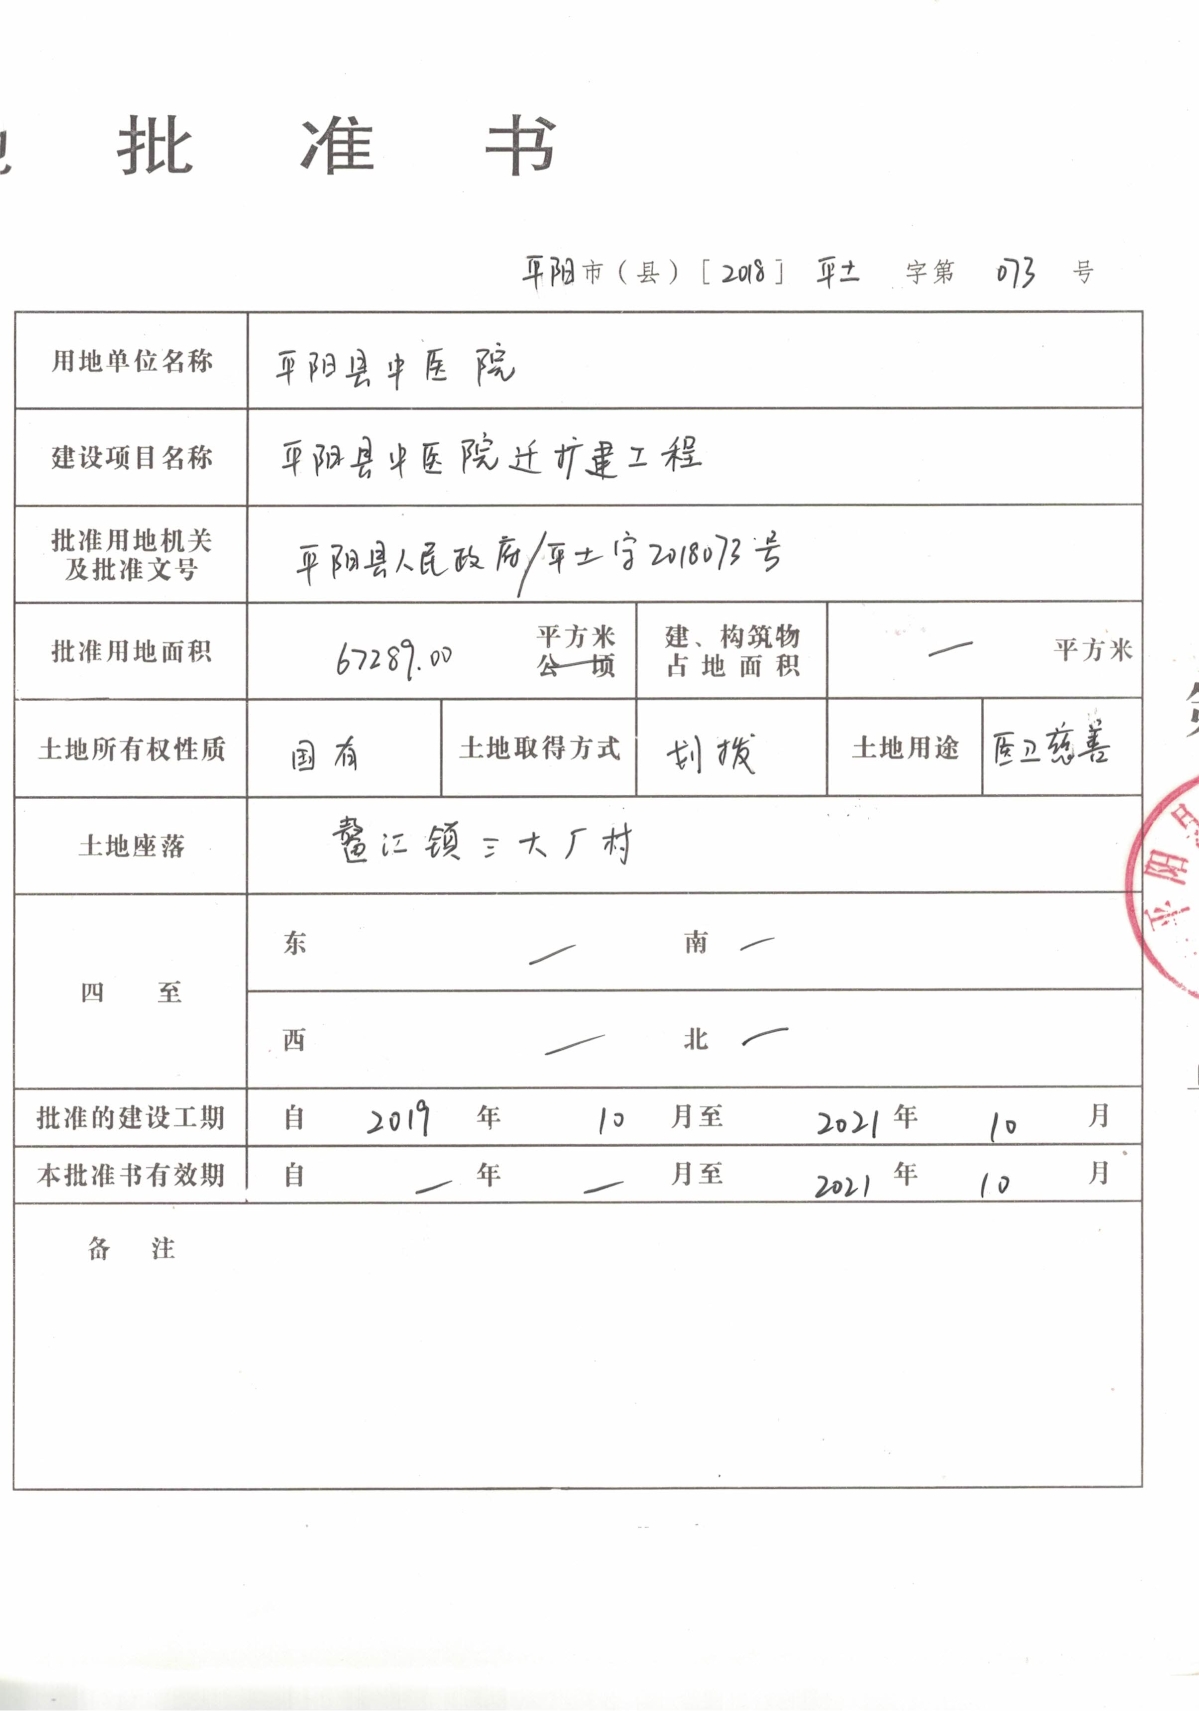 批准书
平阳市（县）［2018］平土字第073号
用地单位名称 平阳县中医院
建设项目名称 平阳县中医院迁扩建工程
批准用地机关及批准文号 平阳县人民政府/平土字2018073号
批准用地面积 67289.00 平方米 公顷 建、构筑物占地面积 — 平方米
土地所有权性质 国有 土地取得方式 划拨 土地用途 医卫慈善
土地座落 鳌江镇三大厂村
四至 东 — 南 —
西 — 北 —
批准的建设工期 自 2019 年 10 月至 2021 年 10 月
本批准书有效期 自 — 年 — 月至 2021 年 10 月
备注
平阳